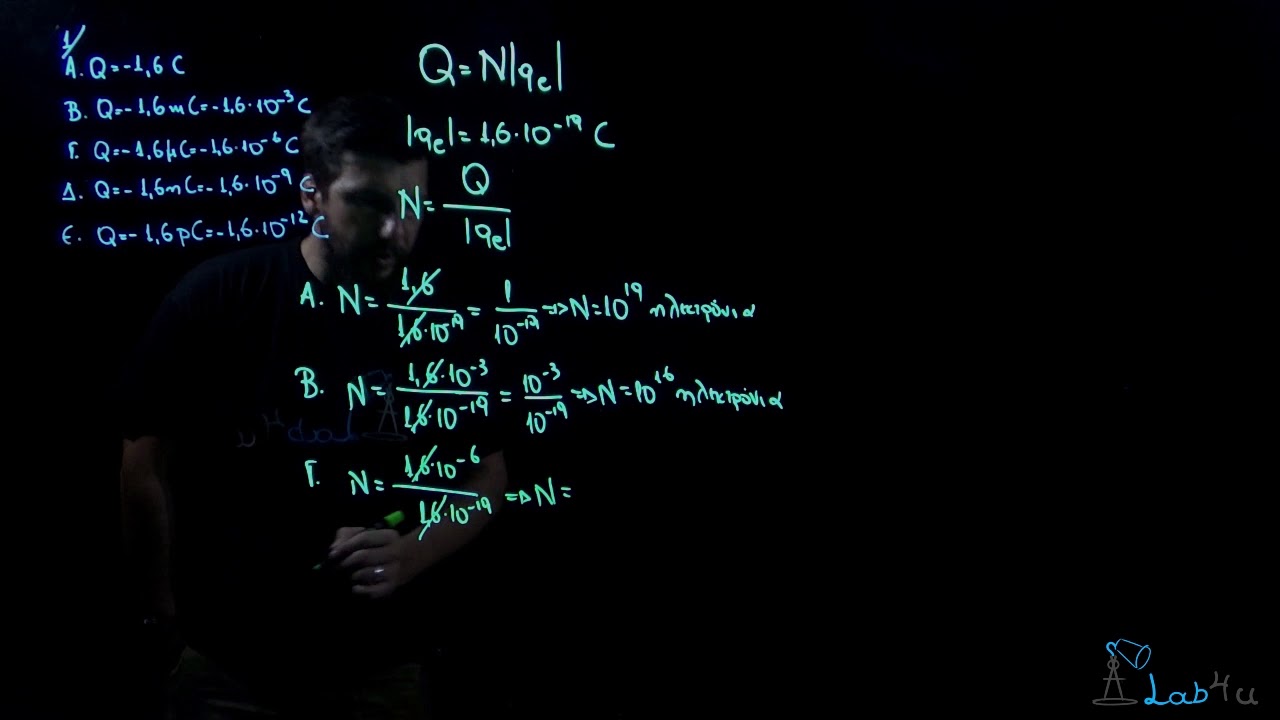 1/
A. Q=-1,6 C
B. Q=-1,6mC=-1,6·10⁻³C
Γ. Q=-1,6μC=-1,6·10⁻⁶C
Δ. Q=-1,6nC=-1,6·10⁻⁹C
Ε. Q=-1,6pC=-1,6·10⁻¹²C
Q=N|qₑ|
|qₑ|=1,6·10⁻¹⁹ C
N= Q / |qₑ|
A. N= 1,6 / 1,6·10⁻¹⁹ = 1 / 10⁻¹⁹ => N=10¹⁹ ηλεκτρόνια
B. N= 1,6·10⁻³ / 1,6·10⁻¹⁹ = 10⁻³ / 10⁻¹⁹ => N=10¹⁶ ηλεκτρόνια
Γ. N= 1,6·10⁻⁶ / 1,6·10⁻¹⁹ => N=
Lab4u